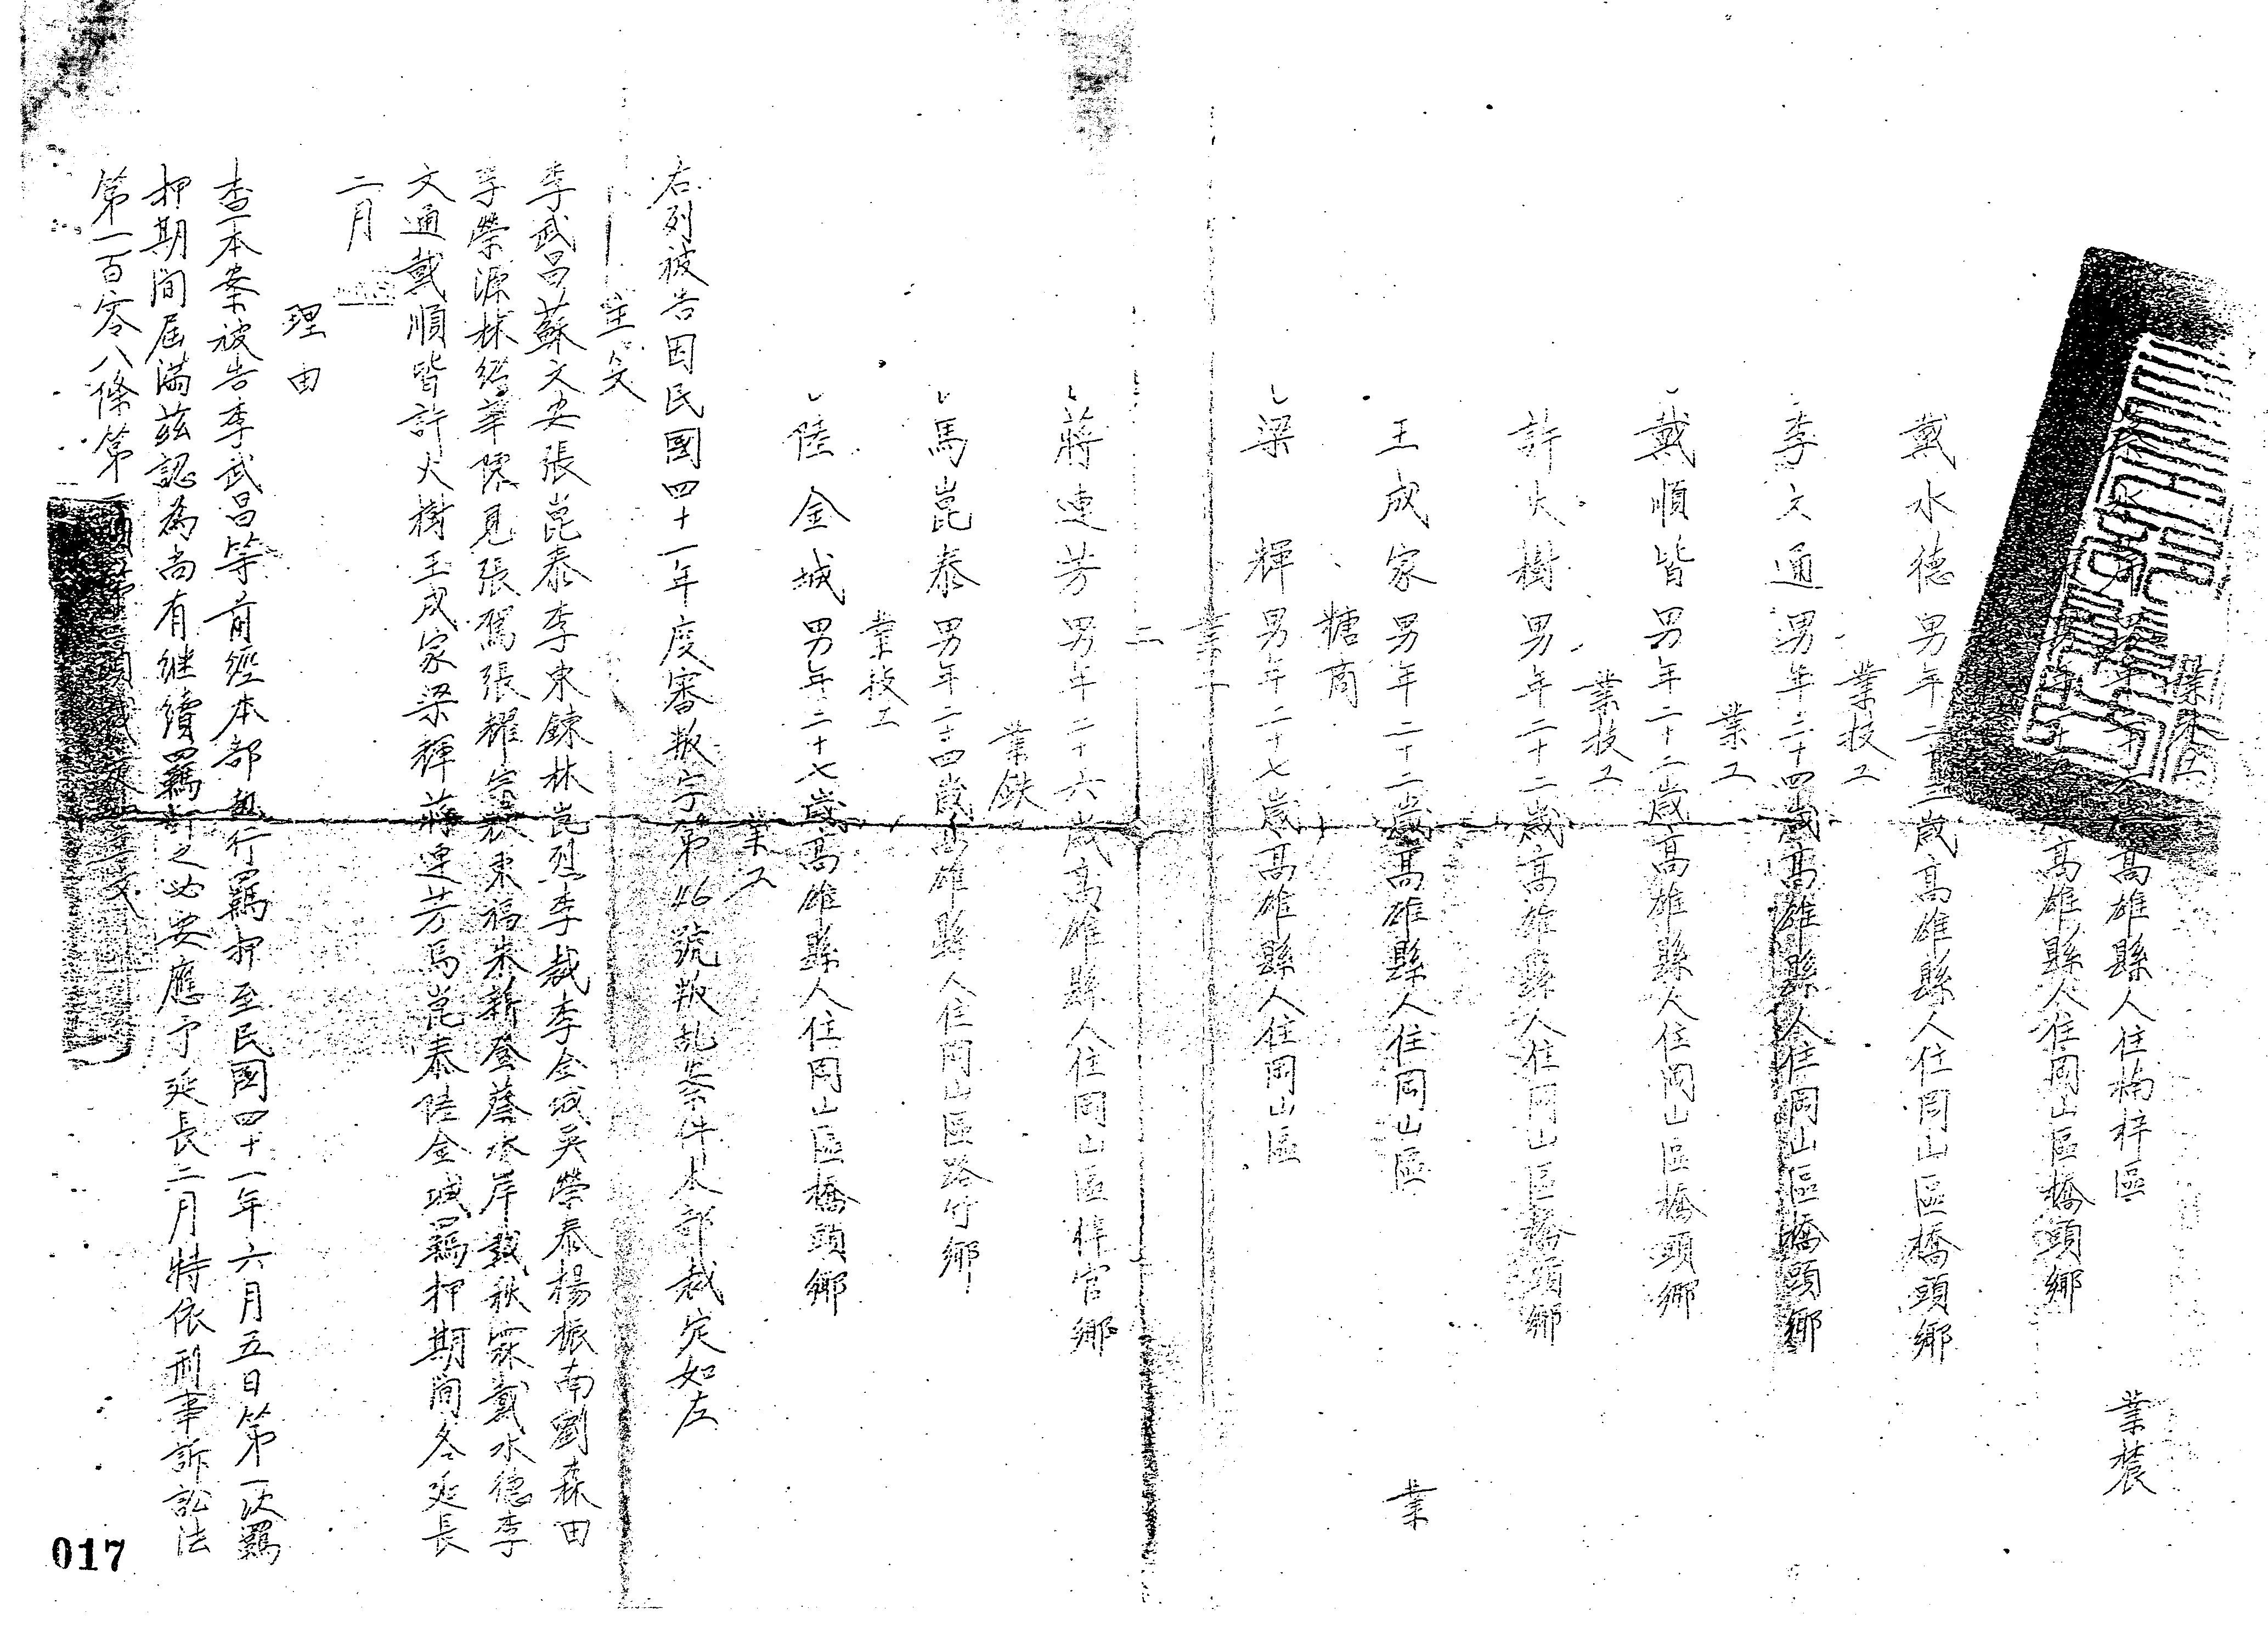 業農
高雄縣人住楠梓區
高雄縣人住岡山區橋頭鄉
戴水德男年二十二歲高雄縣人住岡山區橋頭鄉
業技工
李文通男年二十四歲高雄縣人住岡山區橋頭鄉
業工
戴順皆男年二十二歲高雄縣人住岡山區橋頭鄉
業技工
許火樹男年二十二歲高雄縣人住岡山區橋頭鄉
王成家男年二十二歲高雄縣人住岡山區 業
糖商
梁輝男年二十七歲高雄縣人住岡山區
業
二
蔣連芳男年二十六歲高雄縣人住岡山區梓官鄉
業鉄
馬崑泰男年二十四歲高雄縣人住岡山區路竹鄉
業技工
陸金城男年二十七歲高雄縣人住岡山區橋頭鄉
業工
右列被告因民國四十一年度審叛字第46號叛乱案件本部裁定如左
主文
李武昌蘇文安張崑泰李東錬林崑烈李裁李金城吳榮泰楊振南劉森田
李榮源林紹華陳見張駕張耀宗蔡東福朱新登蔡水岸戴秋霖戴水德李
文通戴順皆許火樹王成家梁輝蔣連芳馬崑泰陸金城羈押期間各延長
二月
理由
查本案被告李武昌等前經本部執行羈押至民國四十一年六月五日第一次羈
押期間屆滿茲認為尚有继續羈押之必要應予延長二月特依刑事訴訟法
第一百零八條第 主文
017